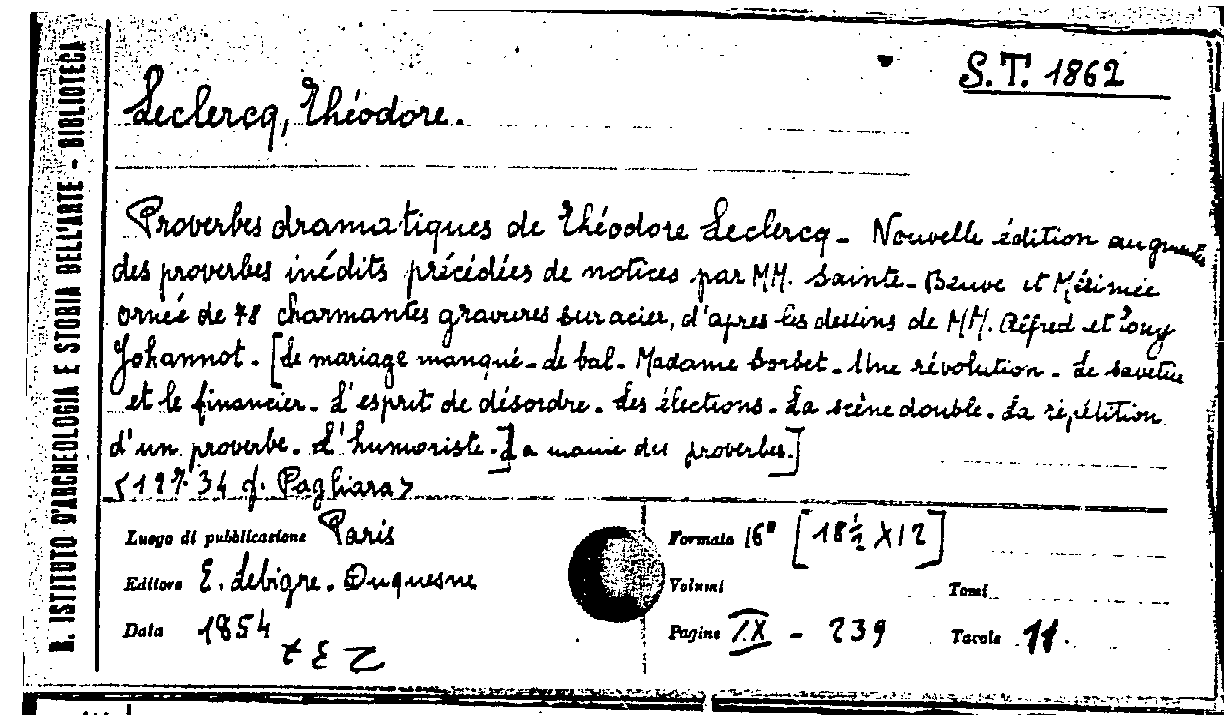 R. ISTITUTO D'ARCHEOLOGIA E STORIA DELL'ARTE - BIBLIOTECA
S.T. 1862
Leclercq, Théodore.
Proverbes dramatiques de Théodore Leclercq - Nouvelle édition augmentée
des proverbes inédits précédées de notices par MM. Sainte-Beuve et Mérimée
ornée de 78 charmantes gravures sur acier, d'apres les dessins de MM. Alfred et Tony
Johannot. [Le mariage manqué - Le bal - Madame Sorbet - Une révolution - Le savetier
et le financier - L'esprit de désordre - Les élections - La scène double - La répétition
d'un proverbe - L'humoriste.] La manie des proverbes.]
<12734 f. Pagliara>
Luogo di pubblicazione Paris
Editore E. Lebigre-Duquesne
Data 1854
Formato 16° [18½ X 12]
Volumi
Tomi
Pagine IX - 239
Tavole 11.